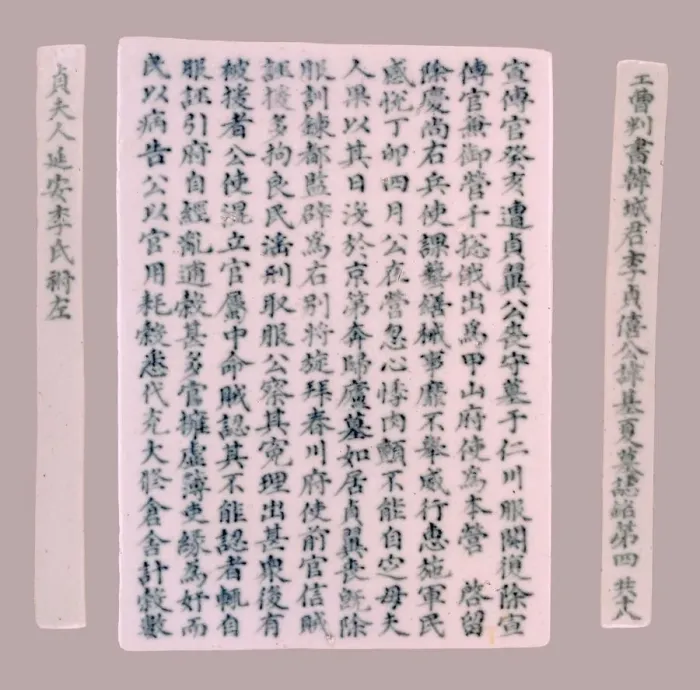 工曹判書韓城君李貞僖公諱基夏墓誌銘第四 共十八
宣傳官癸亥遭貞翼公喪守墓于仁川服闋復除宣
傳官兼御營千摠俄出爲甲山府使爲本營 啓留
除慶尚右兵使課藝繕械事靡不擧威行惠施軍民
感悅丁卯四月公在營忽心悸肉顫不能自定母夫
人果以其日沒於京第奔歸廬墓如居貞翼喪旣除
服訓鍊都監辟爲右別將旋拜春川府使前官信賊
誣援多拘良民濫刑取服公察其寃理出甚衆後有
被援者公使混立官屬中命賊認其不能認者輒自
服誣引府自經亂逋穀甚多官擁虛簿吏緣爲奸而
民以病告公以官用耗穀悉代充大脩倉舍計穀數
貞夫人延安李氏祔左